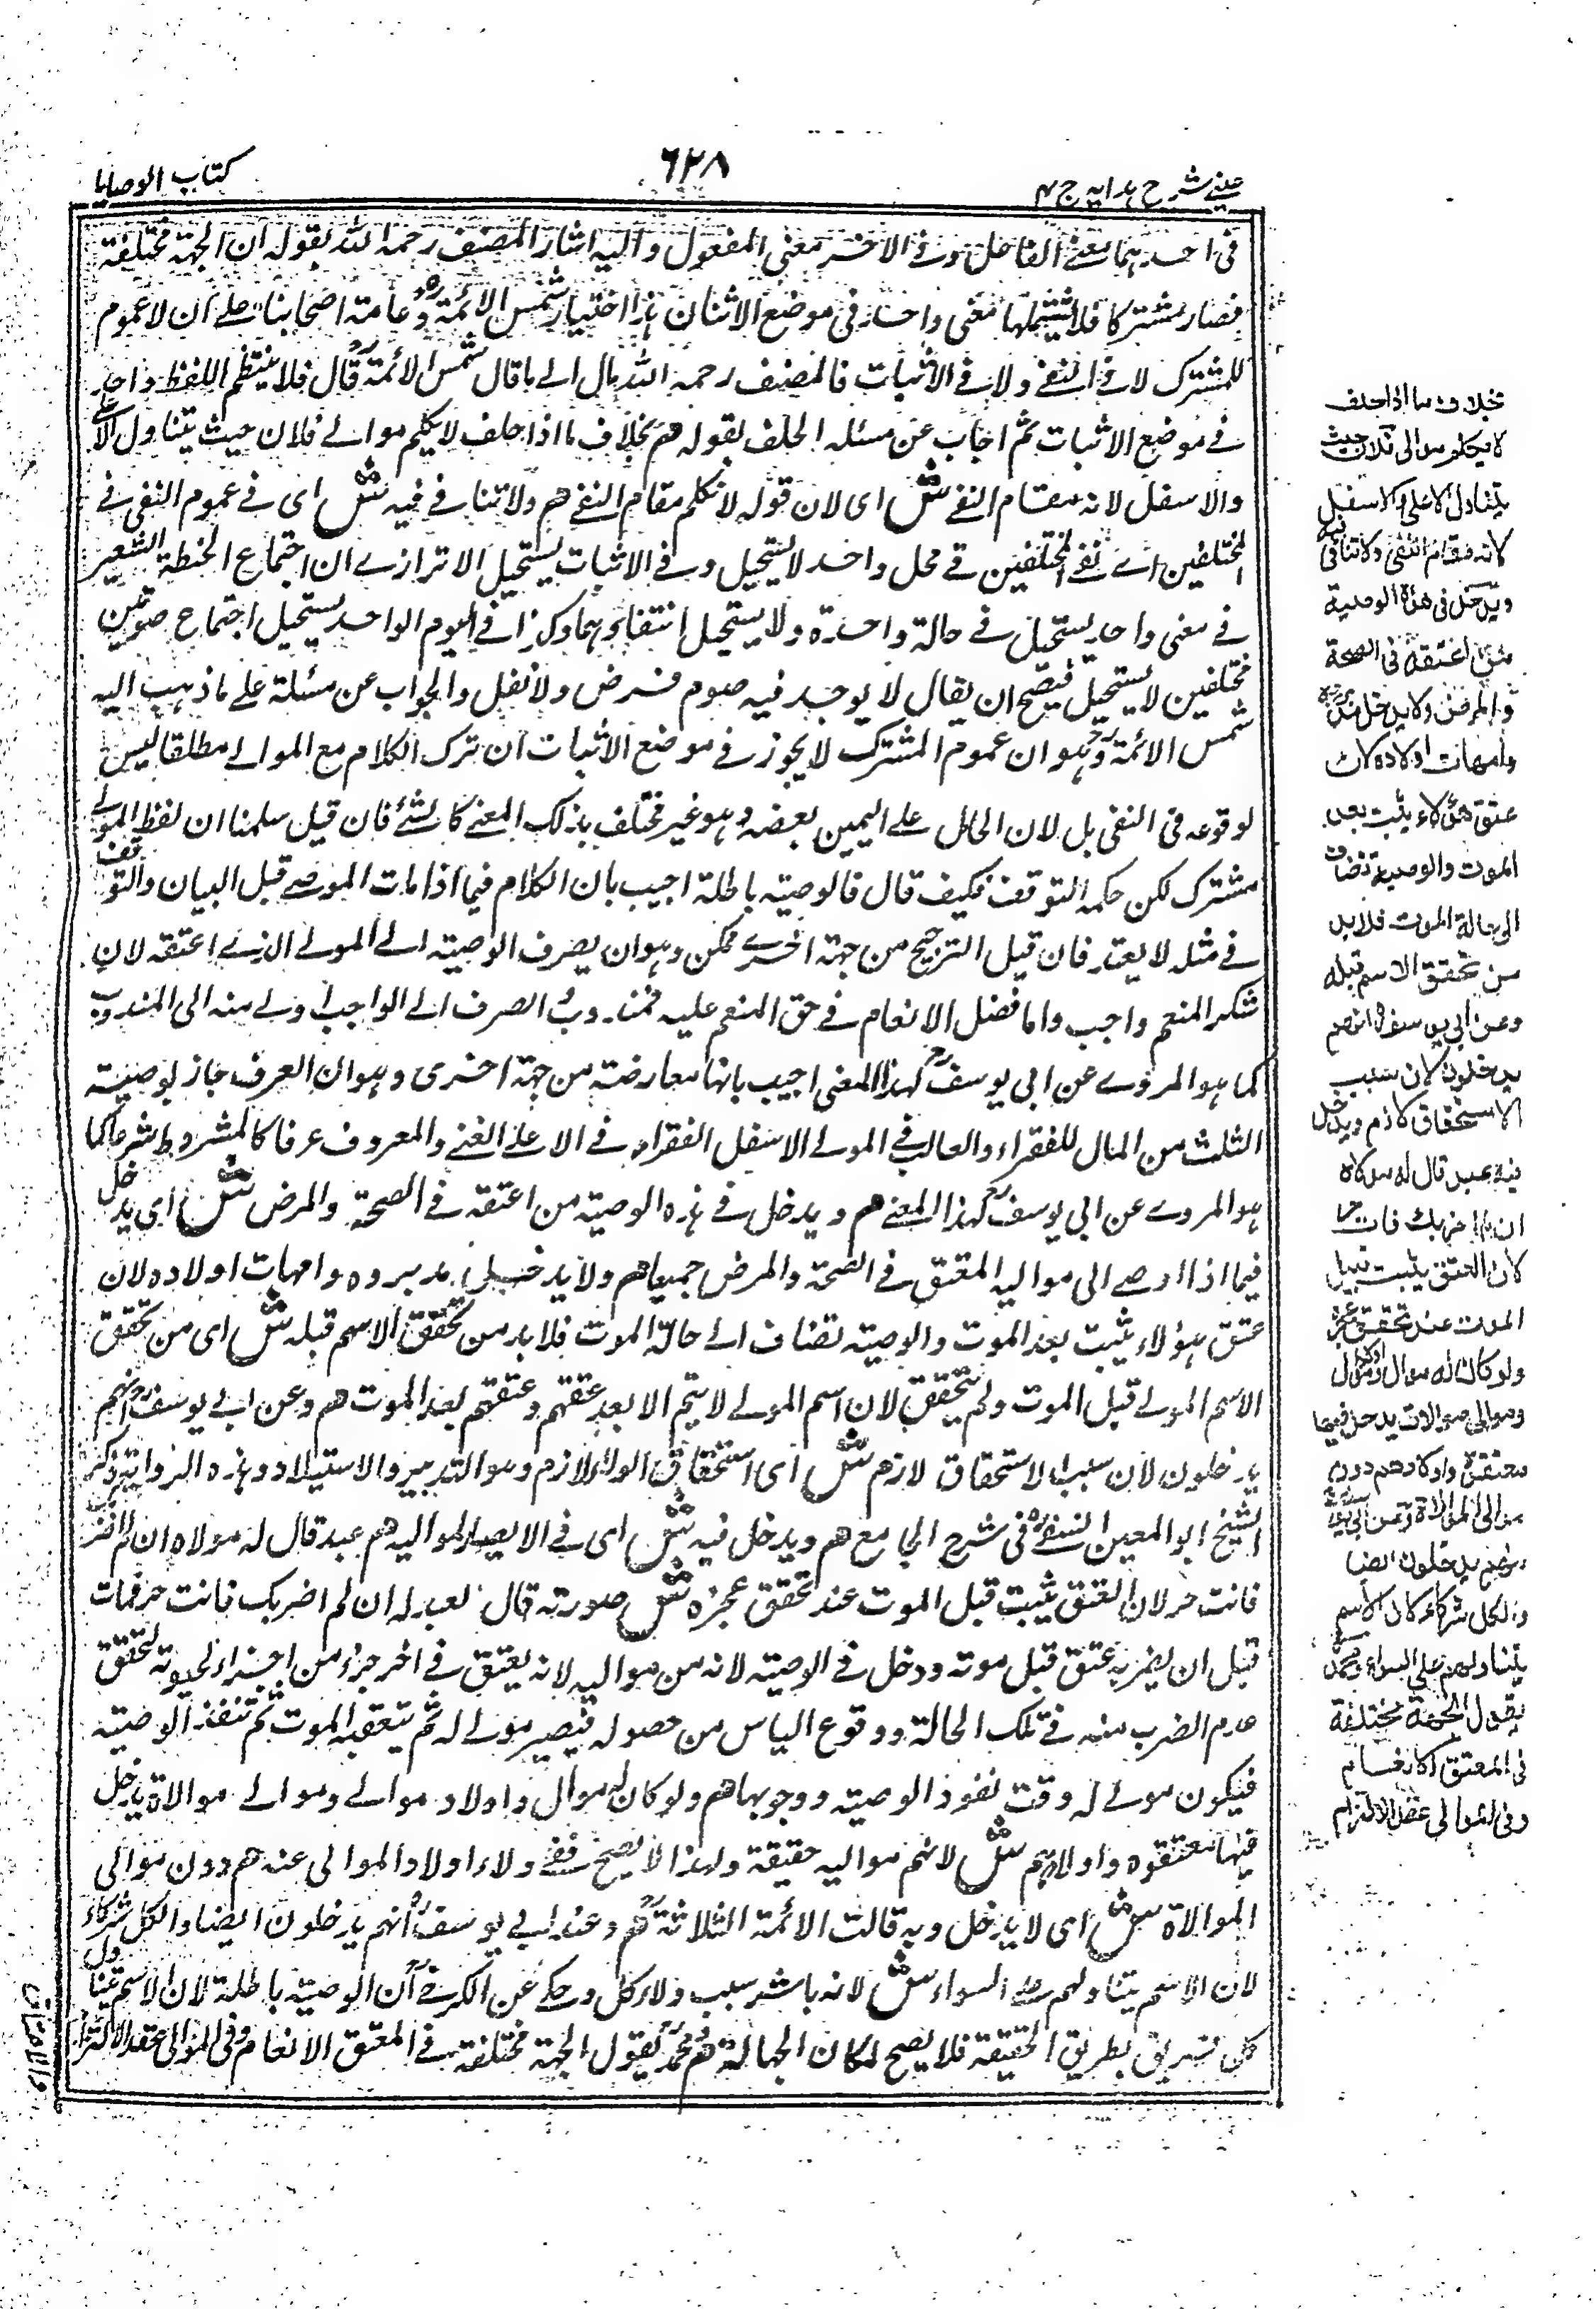 عینے شرح ہدایہ ج ۴
٦٢٨
كتاب الوصايا
فى احدہما معنے الفاعل وفے الاخر معنى المفعول واليہ اشار المصنف رحمہ اللہ بقولہ ان الجہۃ مختلفۃ
فصار مشتركا فلا ينتظمہا معنى واحد فى موضع الاثبات ہذا اختيار شمس الائمۃ رح وعامۃ اصحابنا علے ان لا عموم
للمشترك لا فے النفے ولا فے الاثبات فالمصنف رحمہ اللہ مال الے ما قال شمس الائمۃ رح قال فلا ينتظم اللفظ واحد
فے موضع الاثبات ثم اجاب عن مسئلہ الحلف بقولہ ھم بخلاف ما اذا حلف لا يكلم موالے فلان حيث يتناول الاعلے
والاسفل لانہ مقام النفے ش اى لان قولہ لا نكلم مقام النفے ھم ولا تنافے فيہ ش اى فے عموم النفى فے
المختلفين اے نفے المختلفين فے محل واحد لا يستحيل وفے الاثبات يستحيل الا ترازے ان اجتماع الحنطۃ الشعير
فے معنى واحد يستحيل فے حالۃ واحدۃ ولا يستحيل انتفاؤہما وكذا فے اليوم الواحد يستحيل اجتماع صومين
مختلفين لا يستحيل فيصح ان يقال لا يوجد فيہ صوم فرض ولا نفل والجواب عن مسئلۃ علے ما ذہب اليہ
شمس الائمۃ رح وہو ان عموم المشترك لا يجوز فے موضع الاثبات ان ترك الكلام مع الموالے مطلقا ليس
لوقوعہ فى النفى بل لان الحامل علے اليمين بعضہ وہو غير مختلف بذلك المعنے كالشئے فان قيل سلمنا ان لفظ المولے
مشترك لكن حكمہ التوقف فكيف قال فالوصيۃ باطلۃ اجيب بان الكلام فيما اذا مات الموصے قبل البيان والتوقف
فے مثلہ لا يعتد فان قيل الترجيح من جہۃ اخرے ممكن وہو ان يصرف الوصيۃ الے المولے الذے اعتقہ لان
شكر المنعم واجب واما فضل الانعام فے حق المنعم عليہ فمندوب الصرف الے الواجب اولے منہ الى المندوب
كما ہو المروے عن ابى يوسف رح لہذا المعنى اجيب بانہا معارضۃ من جہۃ اخرى وہو ان العرف جاز بوصيۃ
الثلث من المال للفقراء والغالب فے المولے الاسفل الفقراء وفے الاعلے الغنے والمعروف عرفا كالمشروط شرعا كما
ہو المروے عن ابى يوسف رح لہذا المعنے ھم ويدخل فے ہذہ الوصيۃ من اعتقہ فے الصحۃ والمرض ش اى يدخل
فيما اذا اوصے الى مواليہ المعتق فے الصحۃ والمرض جميعا ھم ولا يدخل مدبروہ وامہات اولادہ لان
عتق ہؤلاء يثبت بعد الموت والوصيۃ تضاف الے حالۃ الموت فلا بد من تحقق الاسم قبلہ ش اى من تحقق
الاسم المولے قبل الموت ولم يتحقق لان اسم المولے لا يتم الا بعد عتقہم وعتقہم بعد الموت ھم وعن ابے يوسف رح انہم
يدخلون لان سبب الاستحقاق لازم ش اى استحقاق الولاء لازم وہو التدبير والاستيلاد وہذہ الرواية ذكرہا
الشيخ ابو المعين النسفے رح فى شرح الجامع ھم ويدخل فيہ ش اى فے الايصاء لمواليہ ھم عبد قال لہ مولاہ ان لم اضربك
فانت حر لان العتق يثبت قبيل الموت عند تحقق عجزہ ش صورتہ قال لعبدلہ ان لم اضربك فانت حر فمات
قبل ان يضربہ عتق قبل موتہ ودخل فے الوصيۃ لانہ من مواليہ لانہ يعتق فے اخر جزء من اجزاء الحيوتہ لتحقق
عدم الضرب منہ فے تلك الحالۃ ووقوع الياس من حصولہ فيصير مولے لہ ثم يتعقبہ الموت ثم تنفذ الوصيۃ
فيكون مولے لہ وقت نفوذ الوصيۃ ووجوبہا ھم ولو كان لہ موال واولاد موالے وموالے موالاۃ يدخل
فيہا معتقوہ واولادہم ش لانہم مواليہ حقيقۃ ولہذا لا يصح نفے ولاء اولاد الموالى عنہ ھم دون موالى
الموالاۃ ش اى لا يدخل وبہ قالت الائمۃ الثلاثۃ رح ھم وعند ابے يوسف رح انہم يدخلون ايضا والكل شركاء
لان الاسم يتناولہم علے السواء ش لانہ باشر سبب ولاء كل وحكے عن الكرخے رح ان الوصيۃ باطلۃ لان الاسم يتناول
كل فريق بطريق الحقيقۃ فلا يصح لمكان الجہالۃ ھم محمد رح يقول الجہۃ مختلفۃ فے المعتق الانعام وفى الموالى عقد الالتزام
بخلاف ما اذا حلف
لا يكلم موالى فلان حيث
يتناول الاعلى والاسفل
لانه مقام النفى ولا تنافى فيه
ويدخل فى هذه الوصية
من اعتقه فى الصحة
والمرض ولا يدخل مدبروه
وامهات اولاده لان
عتق هؤلاء يثبت بعد
الموت والوصية تضاف
الى حالة الموت فلا بد
من تحقق الاسم قبله
وعن ابى يوسف انهم
يدخلون لان سبب
الاستحقاق لازم ويدخل
فيه عبد قال له مولاه
ان لم اضربك فانت حر
لان العتق يثبت قبيل
الموت عند تحقق عجزه
ولو كان له موال واولاد موال
وموالى موالات يدخل فيها
معتقوه واولادهم دون
موالى الموالاة وعن ابى يوسف
انهم يدخلون ايضا
والكل شركاء لان الاسم
يتناولهم على السواء ومحمد
يقول الجهة مختلفة
فى المعتق الانعام
وفى الموالى عقد الالتزام